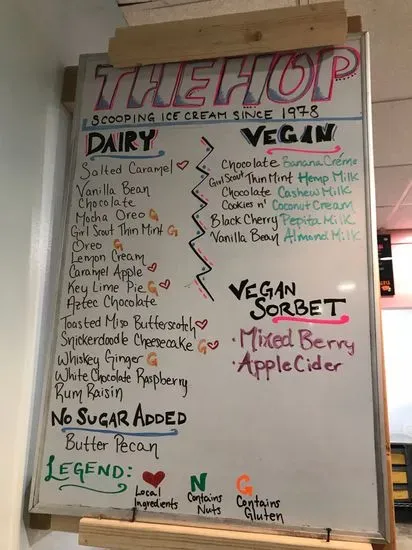 THE HOP
SCOOPING ICE CREAM SINCE 1978
DAIRY
Salted Caramel
Vanilla Bean
Chocolate
Mocha Oreo G
Girl Scout Thin Mint G
Oreo G
Lemon Cream
Caramel Apple
Key Lime Pie G
Aztec Chocolate
Toasted Miso Butterscotch
Snickerdoodle Cheesecake G
Whiskey Ginger G
White Chocolate Raspberry
Rum Raisin
NO SUGAR ADDED
Butter Pecan
VEGAN
Chocolate Banana Crème
Girl Scout Thin Mint Hemp Milk
Chocolate Cashew Milk
Cookies n' Coconut Cream
Black Cherry Pepita Milk
Vanilla Bean Almond Milk
VEGAN
SORBET
· Mixed Berry
· Apple Cider
LEGEND:
Local
Ingredients
N
Contains
Nuts
G
Contains
Gluten